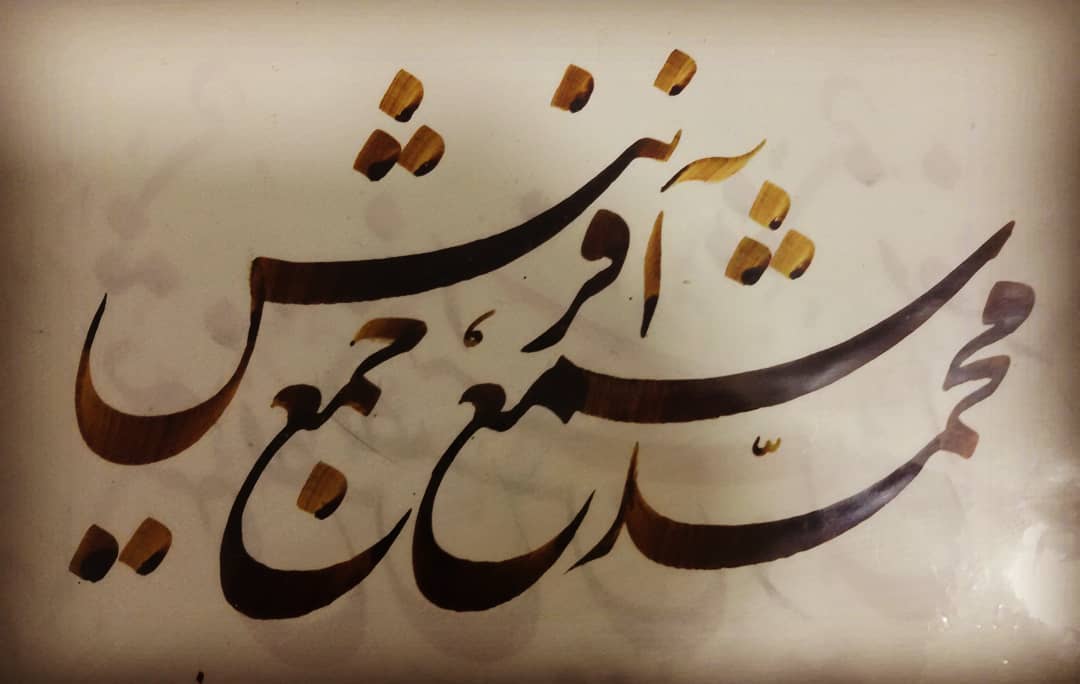 محمّد شمع جمع آفرینش